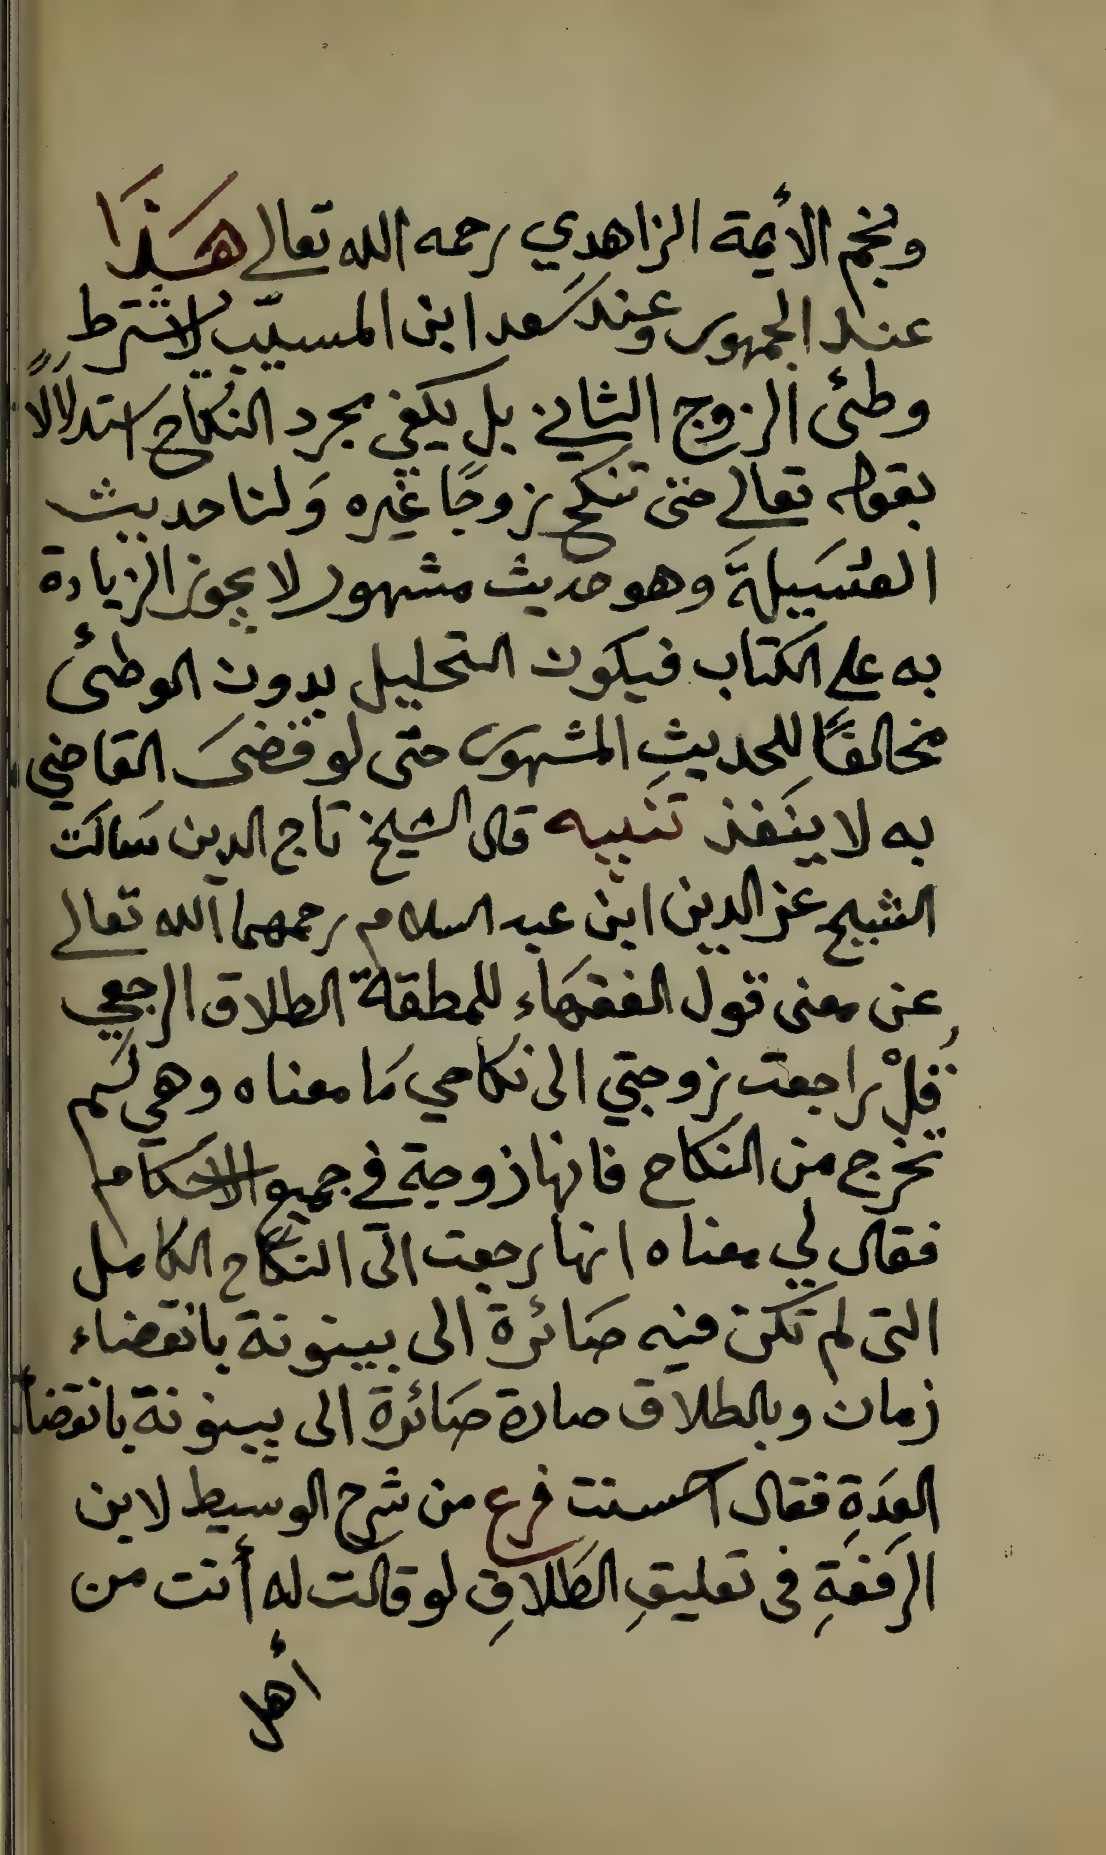 ونجم الأيمة الزاهدي رحمه الله تعالى هَذَا
عند الجمهور وعند سعد ابن المسيّب لا يشترط
وطئ الزوج الثاني بل يكفي مجرد النكاح استدلالاً
بقوله تعالى حتى تنكح زوجًا غيره وَلنا حديث
العُسَيلةَ وهو حديث مشهور لا يجوز الزيادة
به على الكتاب فيكون التحليل بدون الوطئ
مخالفًا للحديثِ المشهور حتى لو قضىَ القاضي
به لا ينفذ تنبيه قال الشيخ تاج الدين سَالت
الشيخ عز الدين ابن عبد السلام رحمهما الله تعالى
عن معنى قول الفقهَاء للمطقة الطلاق الرجعي
قُلْ راجعت زوجتي الى نكاحي مَا معناه وهي لم
تخرج من النكاح فانها زوجة في جميع الاحكام
فقال لي معناه انها رجعت الى النكاح الكامل
التى لم تكن فيه صَائرة الى بينونة بانقضاء
زمان وبالطلاق صارة صَائرة الى بينونة بانقضاء
العِدَةِ فقال احسنت فرع من شرح الوسيط لابن
الرفعَةِ فى تعليقِ الطَلاقِ لو قالت له أنت من
أهل